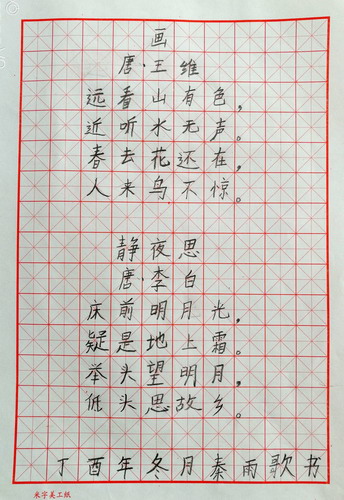 画
唐·王维
远看山有色，
近听水无声。
春去花还在，
人来鸟不惊。
静夜思
唐·李白
床前明月光，
疑是地上霜。
举头望明月，
低头思故乡。
丁酉年冬月秦雨歌书
米字美工纸